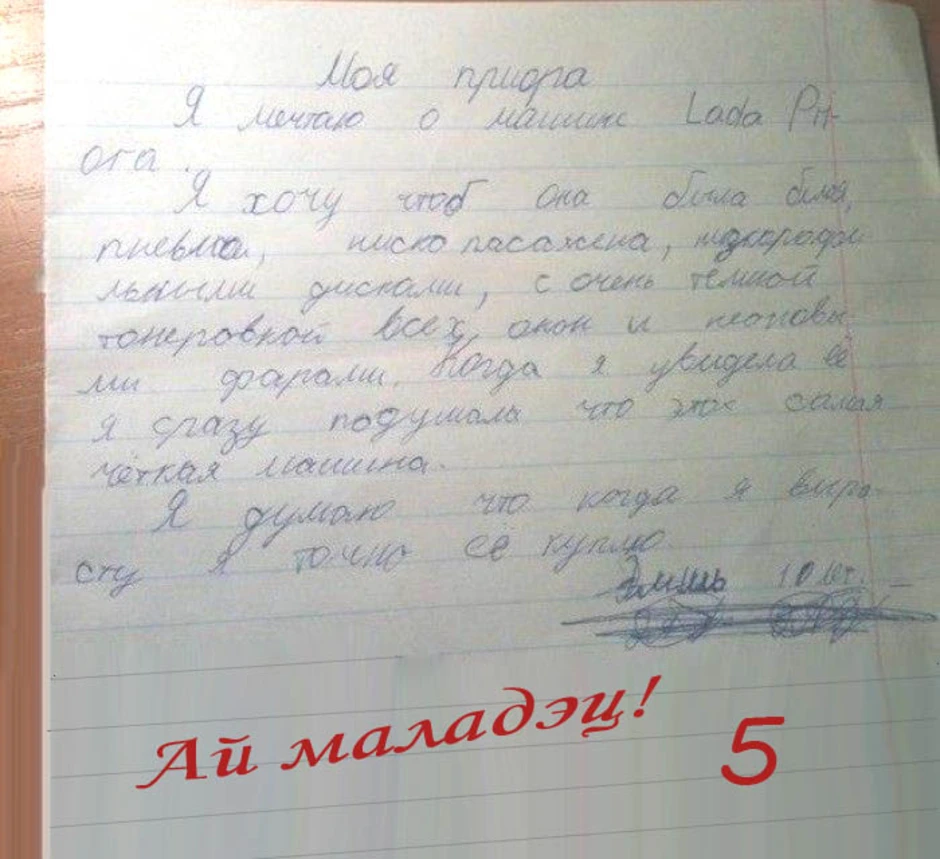 Моя приора
Я мечтаю о машине Lada Pri-
ora.
Я хочу чтоб она была белая,
пневма, ниско пасажена,
льными дисками, с очень темной
тонеровкой всех окон и неоновы-
ми фарами. Когда я увидела её
я сразу подумала что это самая
чёткая машина.
Я думаю что когда я выра-
сту я точно её куплю.
Эмиль 10 лет.
Ай маладэц!
5